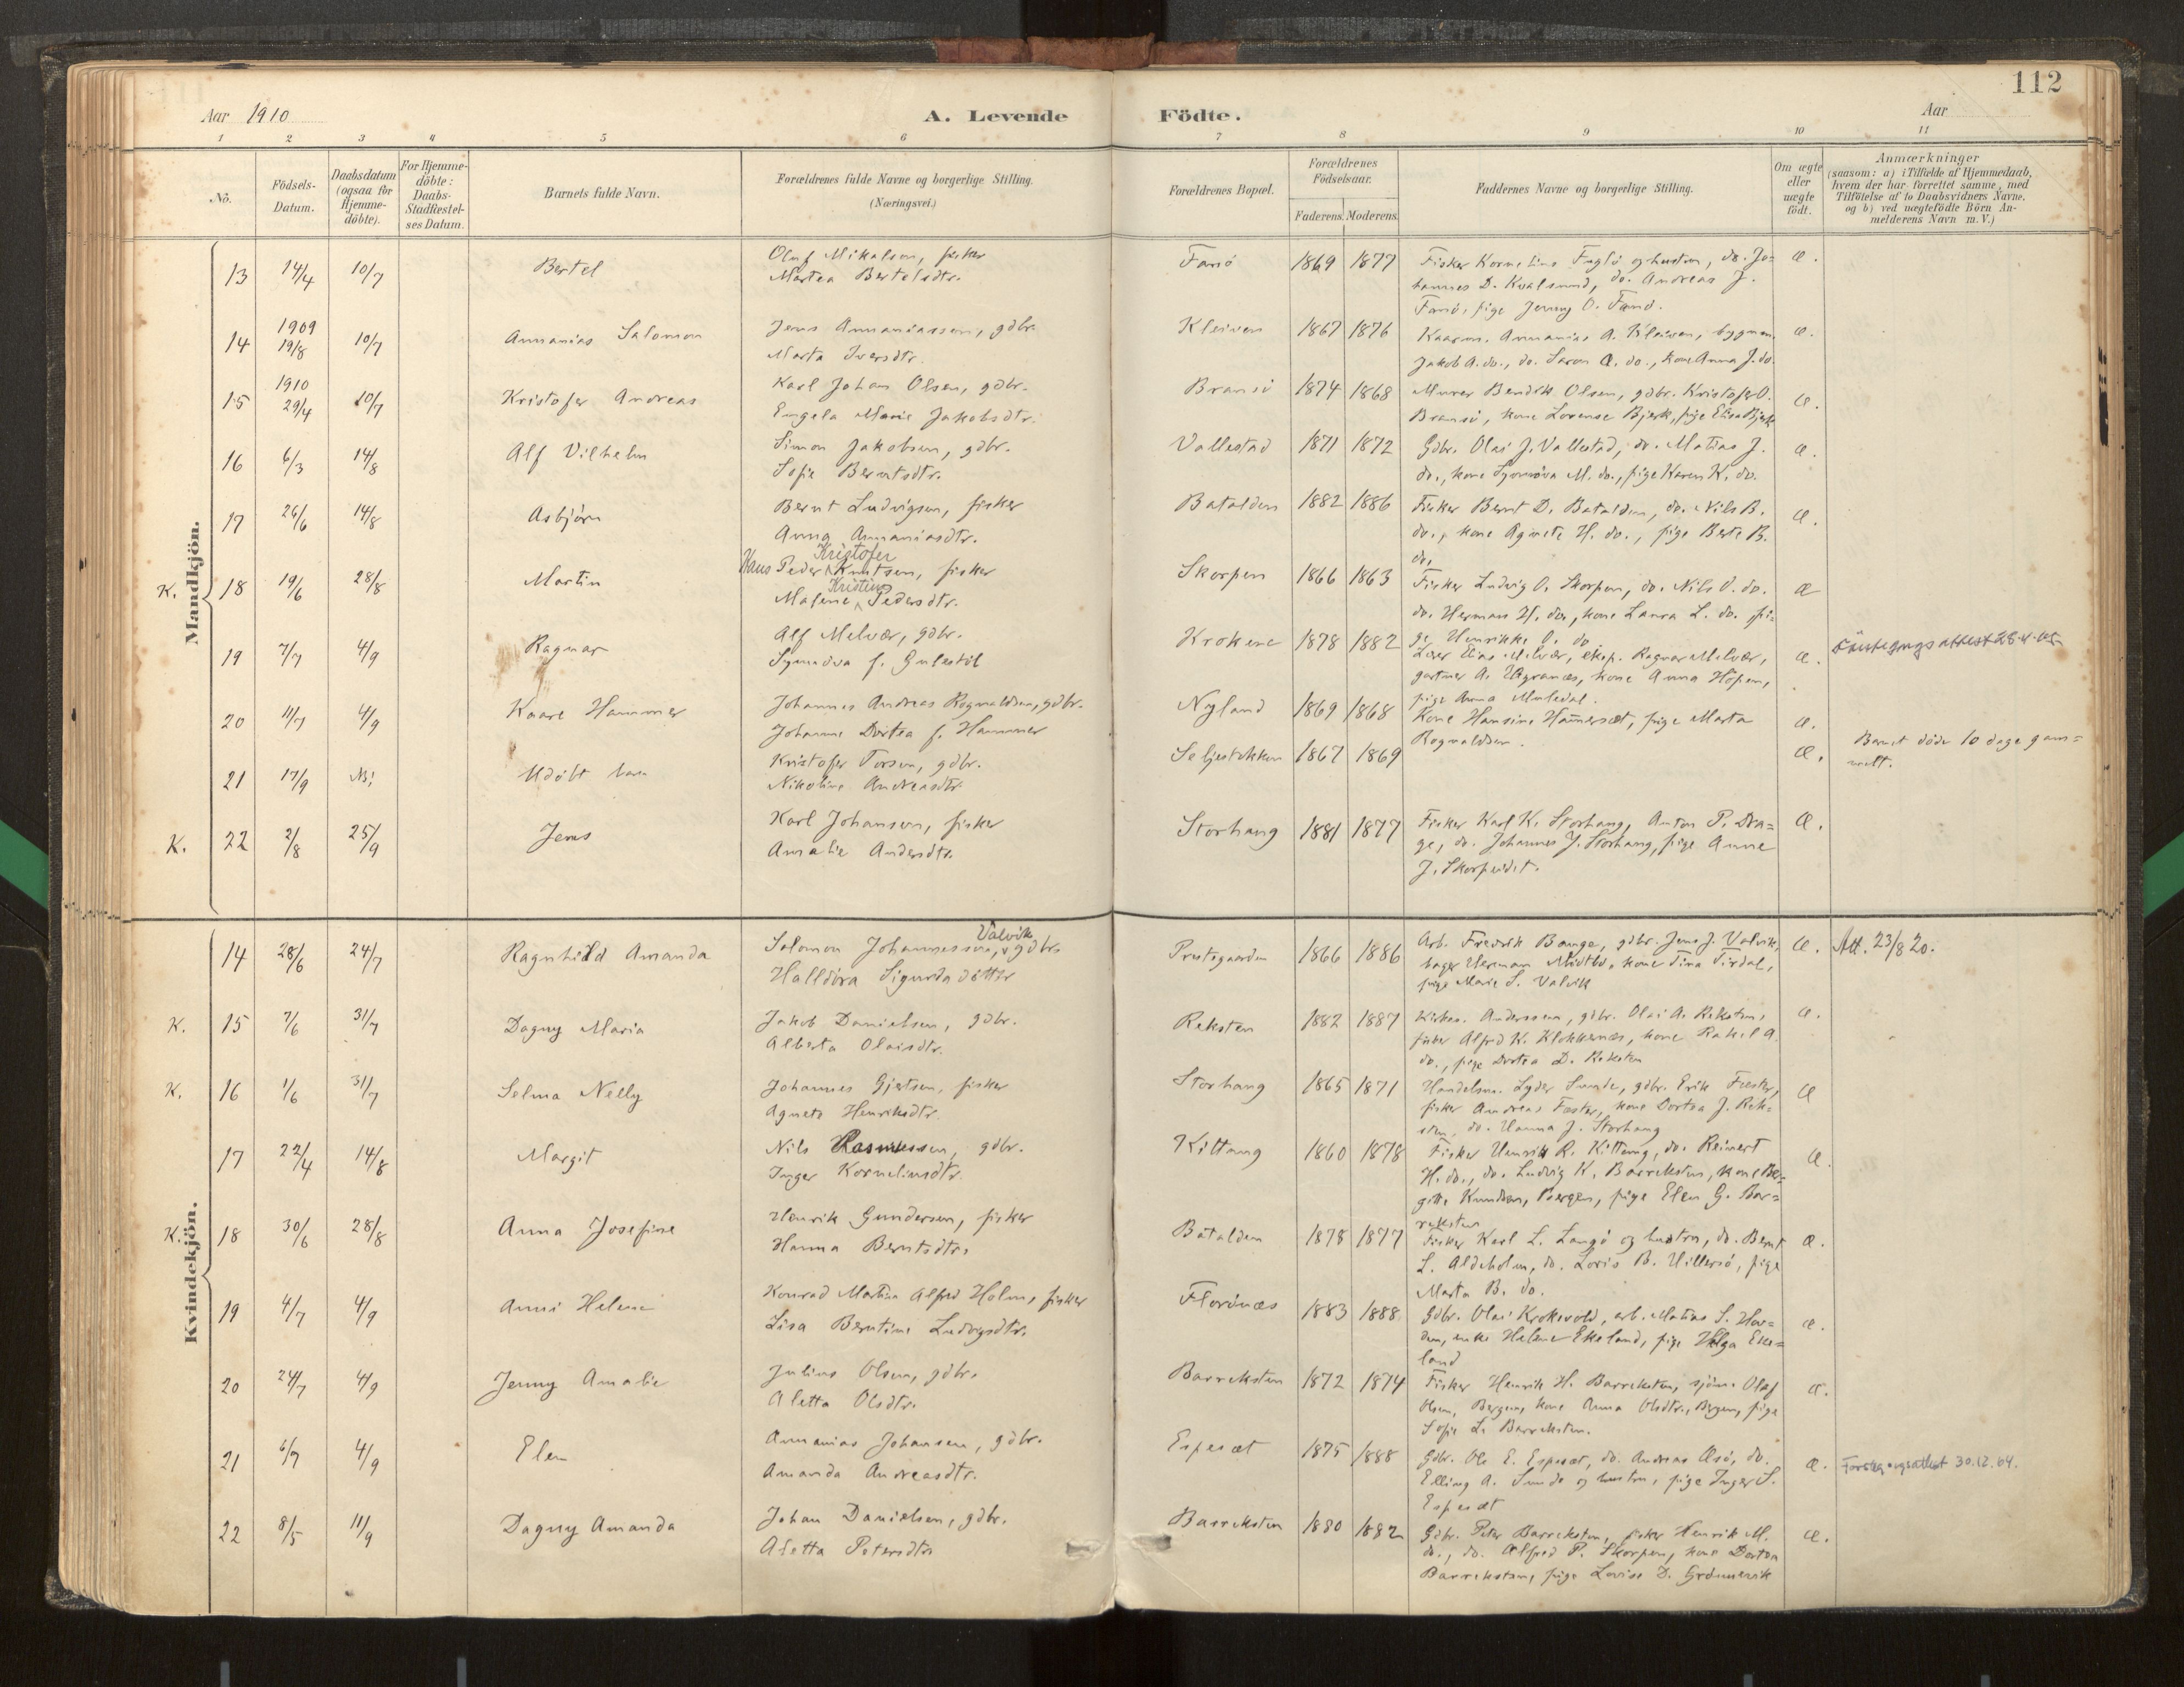 112
Aar 1910
A. Levende Födte.
Aar
1 2 3 4 5 6 7 8 9 10 11
No.
Födsels-Datum.
Daabsdatum (ogsaa for Hjemme-döbte).
For Hjemme-döbte: Daabs-Stadfæstel-ses Datum.
Barnets fulde Navn.
Forældrenes fulde Navne og borgerlige Stilling. (Næringsvei.)
Forældrenes Bopæl.
Forældrenes Födselsaar.
Faderens. Moderens.
Faddernes Navne og borgerlige Stilling.
Om ægte eller uægte födt.
Anmærkninger
(saasom: a) i Tilfælde af Hjemmedaab,
hvem der har forrettet samme, med
Tilföielse af to Daabsvidners Navne,
og b) ved uægtefödte Börn An-
melderens Navn m. V.)
Mandkjön.
13 14/4 10/7 Bertel
Oluf Mikalsen, fisker
Martea Bertelsdtr.
Fanö 1869 1877
Fisker Kornelius Fuglö og hustru, do. Jo-
hannes D. Kvalsund, do. Andreas J.
Fanö, pige Jenny O. Fanö.
æ.
14 1909 19/8 10/7 Annanias Salomon
Jens Annaniassen, gdbr.
Marta Iversdtr.
Kleiven 1867 1876
Kaarm. Annanias A. Kleiven, bygmm.
Jakob A. do., do. Saron A. do., kone Anna J. do.
æ.
15 1910 29/4 10/7 Kristofer Andreas
Karl Johan Olsen, gdbr.
Engela Marie Jakobsdtr.
Bransö 1874 1868
Murer Bendik Olsen, gdbr. Kristofer O.
Bransö, kone Lovense Bjerk, pige Elisa Bjerk
æ.
16 6/3 14/8 Alf Vilhelm
Simon Jakobsen, gdbr.
Sofie Berntsdtr.
Vallestad 1871 1872
Gdbr. Olai J. Vallestad, do. Matias J.
do., kone Synnöva M. do., pige Karen K. do.
æ.
17 26/6 14/8 Asbjörn
Bernt Ludvigsen, fisker
Anna Annaniasdtr.
Batalden 1882 1886
Fisker Bernt D. Batalden, do. Nils B.
do., kone Agnete H. do., pige Berte B.
do.
æ.
K. 18 19/6 28/8 Martin
Kristofer
Hans Peder Knutsen, fisker
Kristine
Malene Pedersdtr.
Skorpen 1866 1863
Fisker Ludvig O. Skorpen, do. Nils O. do.
do. Herman H. do., kone Laura L. do. pi-
ge Henrikke O. do.
æ
19 7/7 4/9 Ragnar
Alf Melvær, gdbr.
Synnöva f. Gulestöl
Krokene 1878 1882
Lærer Elias Melvær, eksp. Ragnar Melvær,
gartner A. Hegranæs, kone Anna Hopen,
pige Anna Muledal.
æ.
20 11/7 4/9 Kaare Hammer
Johannes Andreas Rognaldsen, gdbr.
Johanne Dortea f. Hammer
Nyland 1869 1868
Kone Hansine Hammersæt, pige Marta
Rognaldsen.
æ.
21 17/9 Udöbt barn
Kristofer Torsen, gdbr.
Nikoline Andreasdtr.
Seljestokken 1867 1869
æ.
Barnet döde 10 dage gam-
melt.
K. 22 2/8 25/9 Jens
Karl Johansen, fisker
Amalie Andersdtr.
Storhaug 1881 1877
Fisker Karl K. Storhaug, Anton P. Dra-
ge, do. Johannes J. Storhaug, pige Anne
J. Skorpeidet.
æ.
Kvindekjön.
14 28/6 24/7 Ragnhild Amanda
Valvik
Salomon Johannessen, gdbr.
Halldóra Sigurdadóttir
Prestegaarden 1866 1886
Arb. Fredrik Bauge, gdbr. Jens J. Valvik,
bager Herman Midtbö, kone Tina Tirdal,
pige Marie S. Valvik
æ.
Att. 23/8 20.
K. 15 7/6 31/7 Dagny Maria
Jakob Danielsen, gdbr.
Alberta Olaisdtr.
Reksten 1882 1887
Kirkes. Anderssen, gdbr. Olai A. Reksten,
fisker Alfred K. Klokkernæs, kone Rakel A.
do., pige Dortea D. Reksten
æ.
K. 16 1/6 31/7 Selma Nelly
Johannes Gjertsen, fisker
Agnete Henriksdtr.
Storhaug 1865 1871
Handelsm. Lyder Sunde, gdbr. Erik Fæster,
fisker Andreas Fæster, kone Dortea J. Rek-
sten, do. Hanna J. Storhaug
æ
17 22/4 14/8 Margit
Nils Rasmussen, gdbr.
Inger Korneliusdtr.
Kittang 1860 1878
Fisker Henrik R. Kittang, do. Reinert
H. do., do. Ludvig K. Barreksten, kone Ber-
gitte Knudsen, Bergen, pige Elen G. Bar-
reksten
æ.
K. 18 30/6 28/8 Anna Josefine
Henrik Gundersen, fisker
Hanna Berntsdtr.
Batalden 1878 1877
Fisker Karl L. Langö og hustru, do. Bernt
L. Aldeholm, do. Loris B. Hillersö, pige
Marta B. do.
æ.
19 4/7 4/9 Anni Helene
Konrad Martin Alfred Holm, fisker
Lisa Berntine Ludvigsdtr.
Florönæs 1883 1888
Gdbr. Olai Krokevold, arb. Matias S. Hov-
den, enke Helene Ekeland, pige Helga Eke-
land
æ.
20 24/7 4/9 Jenny Amalie
Julius Olsen, gdbr.
Aletta Olsdtr.
Barreksten 1872 1874
Fisker Henrik H. Barreksten, sjöm. Olaf
Olsen, Bergen, kone Anna Olsdtr., Bergen, pige
Sofie L. Barreksten.
æ.
21 6/7 4/9 Elen
Annanias Johansen, gdbr.
Amanda Andreasdtr.
Espesæt 1875 1888
Gdbr. Ole E. Espesæt, do. Andreas Æsö, do.
Elling A. Sunde og hustru, pige Inger S.
Espesæt
æ.
30.12.64.
22 8/5 11/9 Dagny Amanda
Johan Danielsen, gdbr.
Aletta Petersdtr.
Barreksten 1880 1882
Gdbr. Peter Barreksten, fisker Henrik M.
do., do. Alfred P. Skorpen, kone Dortea
Barreksten, pige Lovise D. Grönnevik
æ.